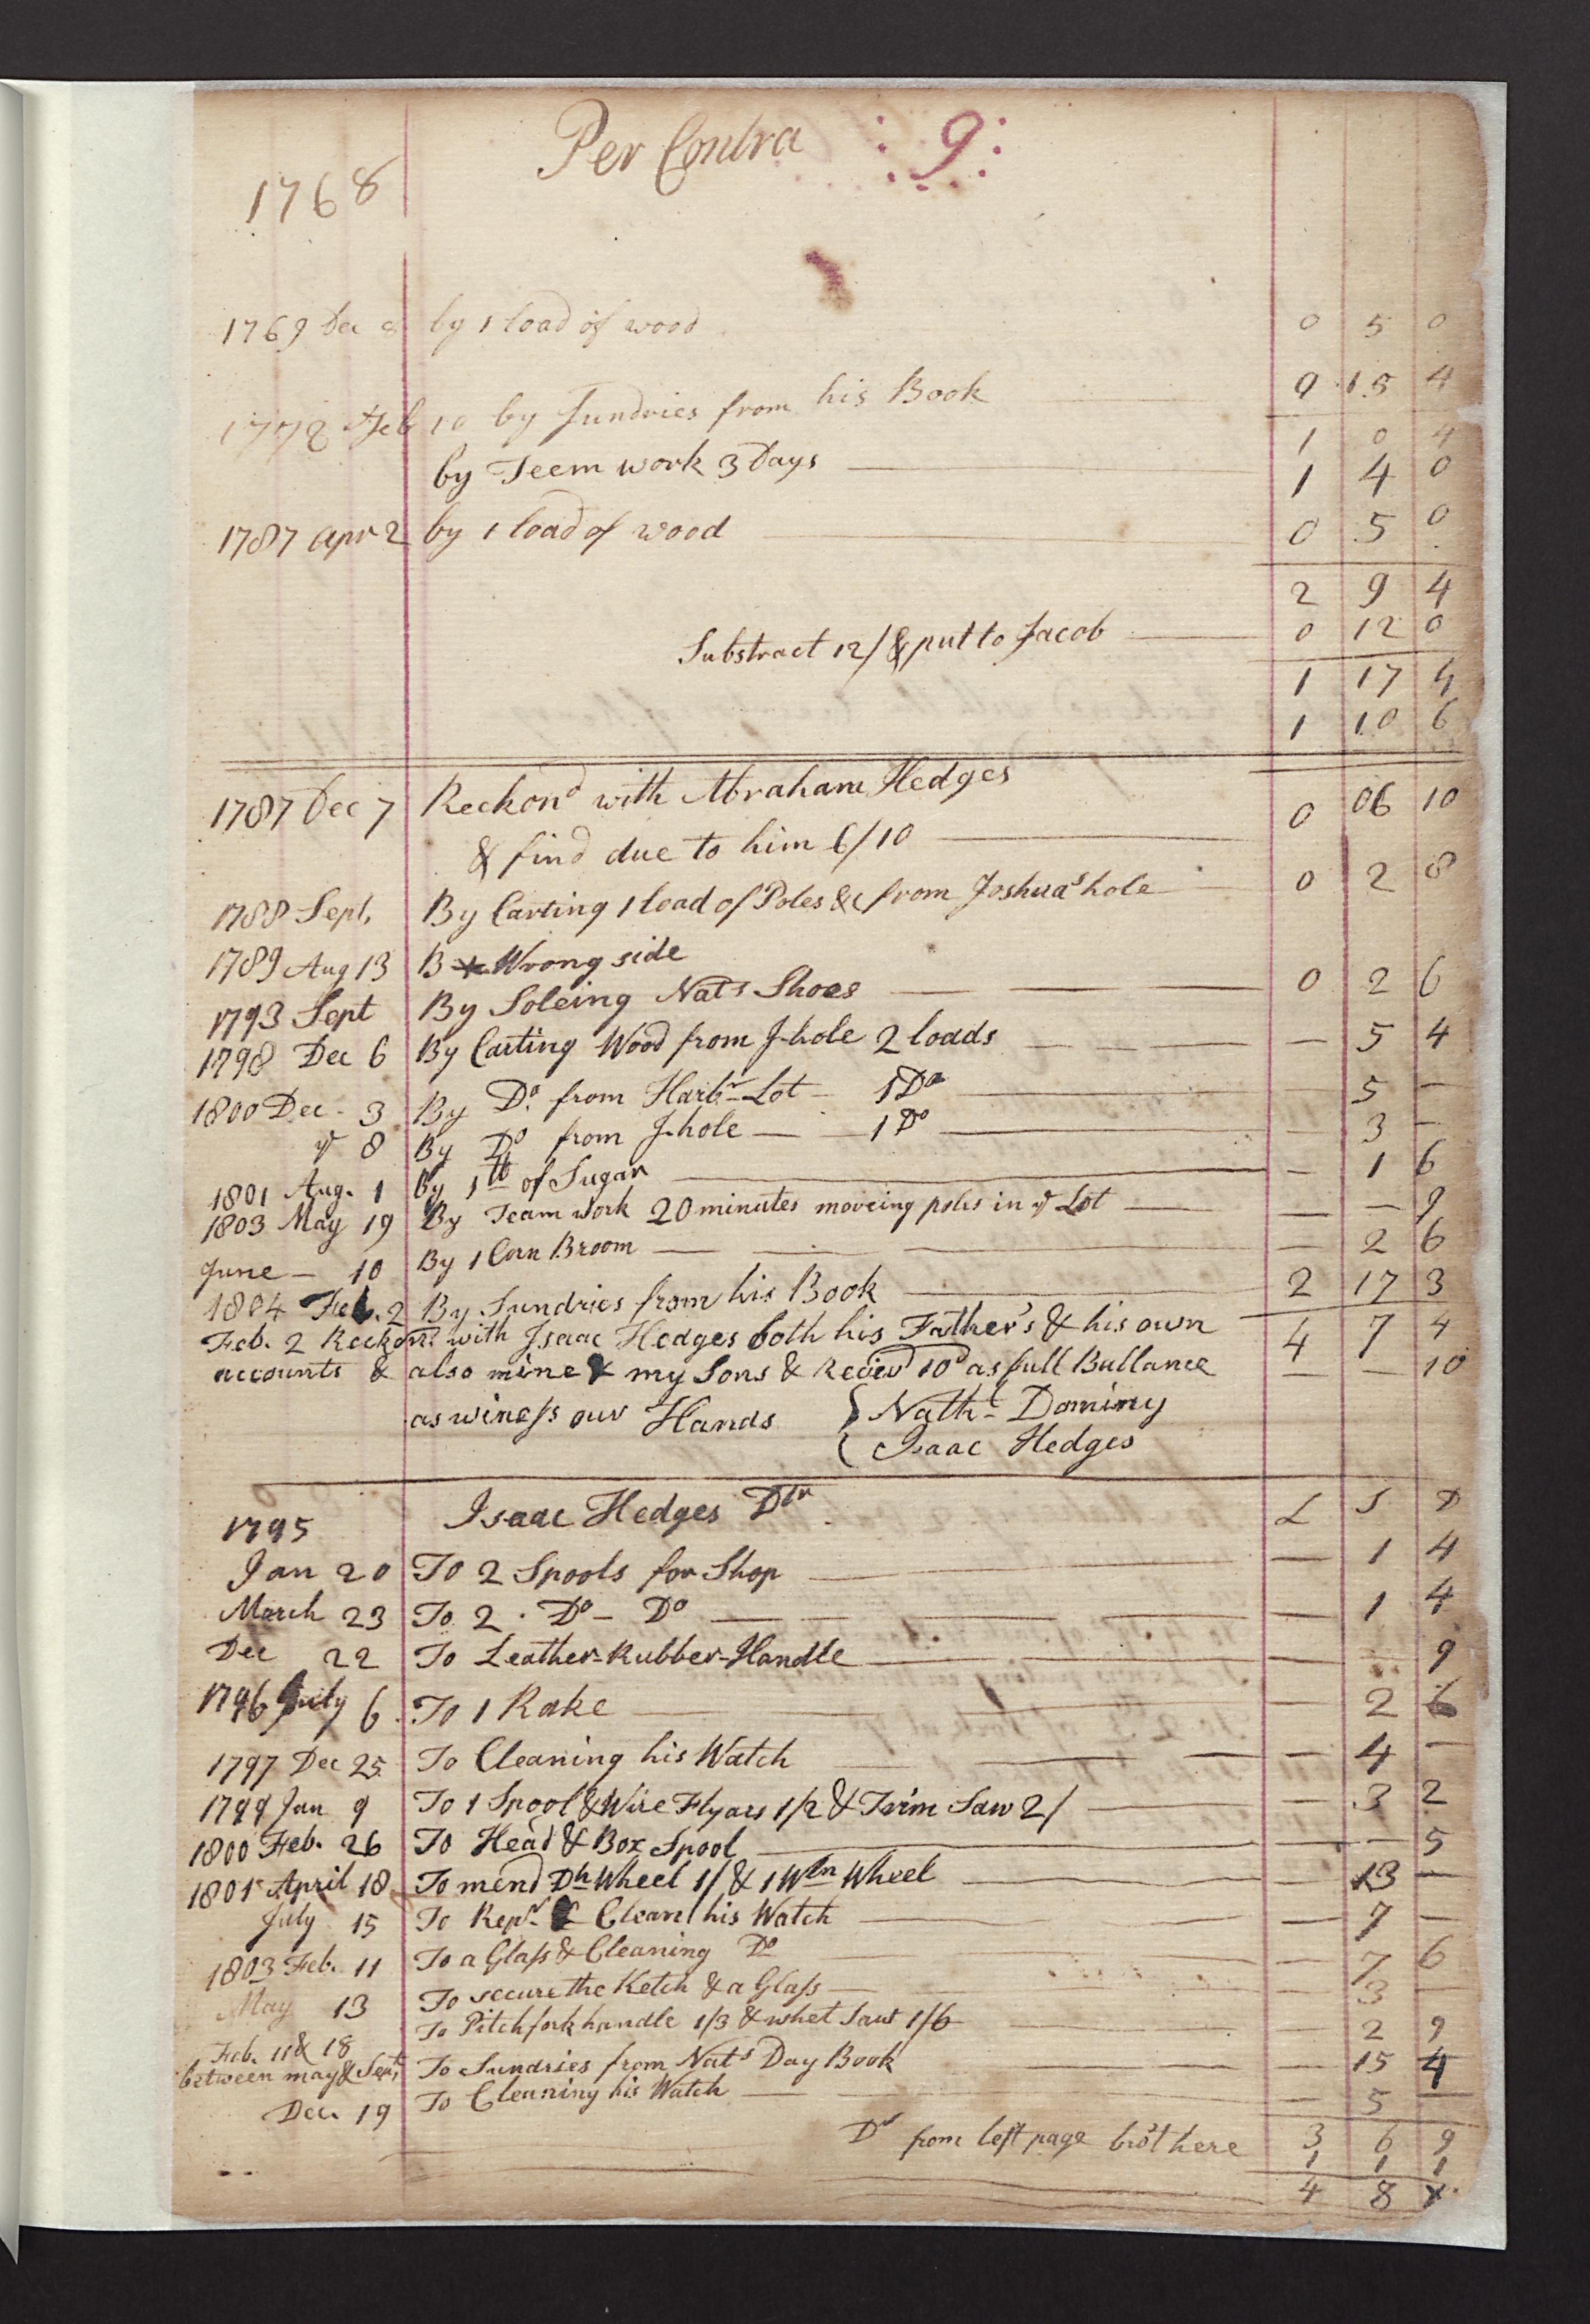 Per Contra :9:
1768
1769 Dec 8 by 1 load of wood 0 5 0
1772 Feb 10 by Sundries from his Book 0 15 4
1 0 4
by Teem work 3 Days 1 4 0
1787 apr 2 by 1 load of wood 0 5 0
2 9 4
Substract 12/ & put to Jacob 0 12 0
1 17 4
1 10 6
1787 Dec 7 Reckond with Abraham Hedges
& find due to him 6/10 0 06 10
1788 Sept, By Carting 1 load of Poles &c from Joshua's hole 0 2 8
1789 Aug 13 B Wrong side
1793 Sept By Soleing Nats Shoes 0 2 6
1798 Dec 6 By Carting Wood from J-hole 2 loads — 5 4
1800 Dec. 3 By Do. from Harbr Lot 1 Do 5 —
ye 8 By Do from J-hole — 1 Do — 3 —
1801 Aug. 1 By 1 lb of Sugar — 1 6
1803 May 19 By Team work 20 minutes moveing poles in ye Lot — — 9
June — 10 By 1 Corn Broom — 2 6
1804 Feb. 2 By Sundries from his Book 2 17 3
Feb. 2 Reckond with Isaac Hedges both his Father's & his own 4 7 4
accounts & also mine & my Sons & Recievd 10d as full Ballance — — 10
as winess our Hands { Nathl Dominy
{ Isaac Hedges
1795 Isaac Hedges Dtr L S D
Jan 20 To 2 Spools for Shop — 1 4
March 23 To 2 . Do — Do — 1 4
Dec 22 To Leather-Rubber-Handle — 9
1796 July 6 To 1 Rake — 2 6
1797 Dec 25 To Cleaning his Watch — 4 —
1799 Jan 9 To 1 Spool & Wire Flyars 1/2 & Trim Saw 2/ — 3 2
1800 Feb. 26 To Head & Box Spool — — 5
1801 April 18 To mend Dh Wheel 1/ & 1 Wln Wheel — 13 —
July 15 To Repr & Clean his Watch — 7 —
1803 Feb. 11 To a Glass & Cleaning Do — 7 6
May 13 To secure the Ketch & a Glass — 3 —
Feb. 11 & 18 To Pitchfork handle 1/3 & whet Saws 1/6 — 2 9
between may & Sept, To Sundries from Nat's Day Book — 15 4
Dec. 19 To Cleaning his Watch — 5 —
Dr from left page bro't here 3 6 9
1 1 1
4 8